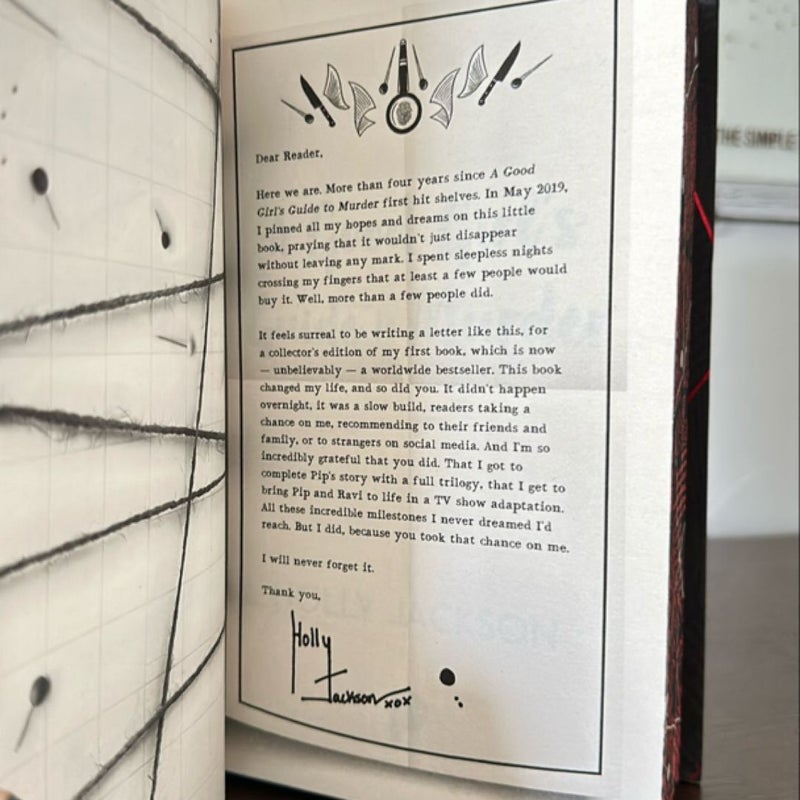 Dear Reader,
Here we are. More than four years since A Good
Girl's Guide to Murder first hit shelves. In May 2019,
I pinned all my hopes and dreams on this little
book, praying that it wouldn't just disappear
without leaving any mark. I spent sleepless nights
crossing my fingers that at least a few people would
buy it. Well, more than a few people did.
It feels surreal to be writing a letter like this, for
a collector's edition of my first book, which is now
— unbelievably — a worldwide bestseller. This book
changed my life, and so did you. It didn't happen
overnight, it was a slow build, readers taking a
chance on me, recommending to their friends and
family, or to strangers on social media. And I'm so
incredibly grateful that you did. That I got to
complete Pip's story with a full trilogy, that I get to
bring Pip and Ravi to life in a TV show adaptation.
All these incredible milestones I never dreamed I'd
reach. But I did, because you took that chance on me.
I will never forget it.
Thank you,
Holly
Jackson xox
THE SIMPLE